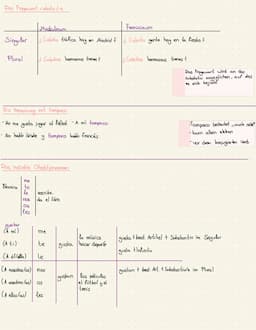 Das Fragewort cuánto/a
Maskulinum
Femininum
Singular
¿Cuánto tráfico hay en Madrid?
¿Cuánta gente hay en la fiesta?
Plural
¿Cuántos hermanos tienes?
¿Cuántas hermanas tienes?
Das Fragewort wird an das
Substantiv angeglichen, auf das
es sich bezieht
Die Verneinung mit tampoco
- No me gusta jugar al fútbol. - A mí tampoco
- No hablo inglés y tampoco hablo francés.
Tampoco bedeutet „auch nicht"
- kann allein stehen
- vor dem konjugierten Verb
Das indirekte Objektpronomen
me
te
le
nos
os
les
escribe.
da el libro.
gustar
(A mí)
me
(A ti)
te
(A él/ella)
le
gusta
la música
hacer deporte
gusta + best. Artikel + Substantiv im Singular
gusta + Infinitiv
(A nosotros/as)
nos
(A vosotros/as)
os
(A ellos/as)
les
gustan
las películas
el fútbol y el
tenis
gustan + best. Art. + Substantiv im Plural